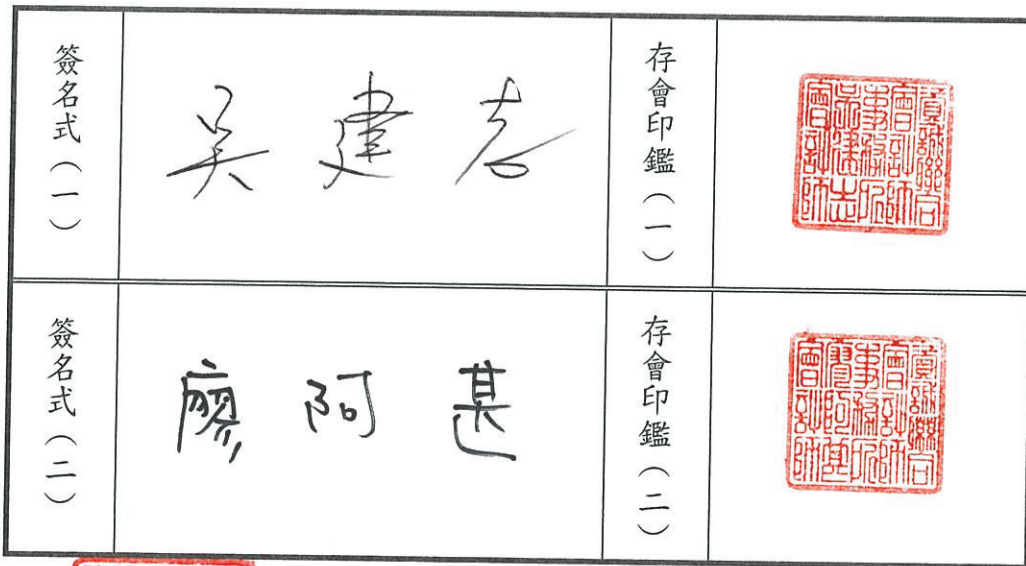 簽名式（一）
吳建志
存會印鑑（一）
聯合
會計師
事務所
吳建志
會計師
簽名式（二）
廖阿甚
存會印鑑（二）
聯合
會計師
事務所
廖阿甚
會計師